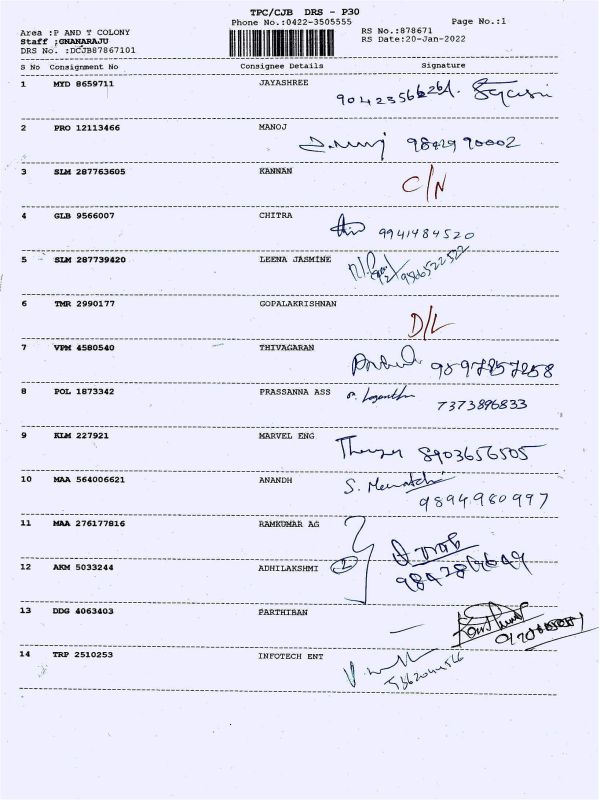 TPC/CJB DRS - P30
Phone No.:0422-3505555 Page No.:1
Area :P AND T COLONY RS No.:878671
Staff :GNANARAJU RS Date:20-Jan-2022
DRS No. :DCJB87867101
S No Consignment No Consignee Details Signature
1 MYD 8659711 JAYASHREE
2 PRO 12113466 MANOJ
9842990002
3 SLM 287763605 KANNAN
C/N
4 GLB 9566007 CHITRA
9941484520
5 SLM 287739420 LEENA JASMINE
9566522522
6 TMR 2990177 GOPALAKRISHNAN
D/L
7 VPM 4580540 THIVAGARAN
8 POL 1873342 PRASSANNA ASS
7373896833
9 KLM 227921 MARVEL ENG
8903656505
10 MAA 564006621 ANANDH
9894980997
11 MAA 276177816 RAMKUMAR AG
12 AKM 5033244 ADHILAKSHMI
13 DDG 4063403 PARTHIBAN
14 TRP 2510253 INFOTECH ENT